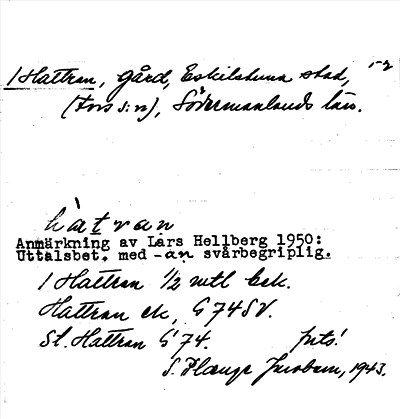 1 Hattran, gård, Eskilstuna stad, 1-2
(Fors s:n), Södermanlands län.
hàtran
Anmärkning av Lars Hellberg 1950:
Uttalsbet. med -an svårbegriplig.
1 Hattran 1/2 mtl Eek.
Hattran ek, G 74 SV.
St. Hattran G 74.
S. Plange Jacobsen, 1943.